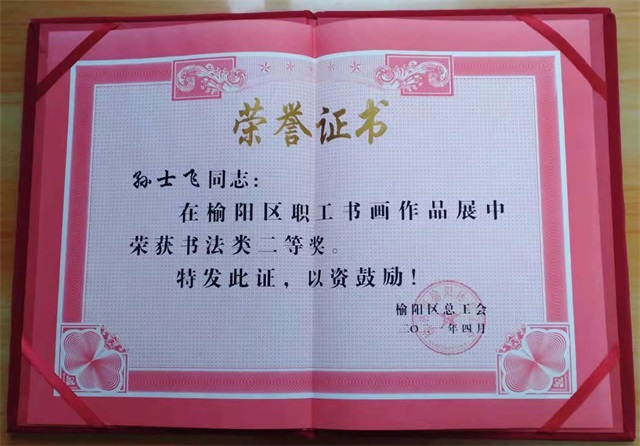 荣誉证书
孙士飞同志：
在榆阳区职工书画作品展中
荣获书法类二等奖。
特发此证，以资鼓励！
榆阳区总工会
二〇二一年四月